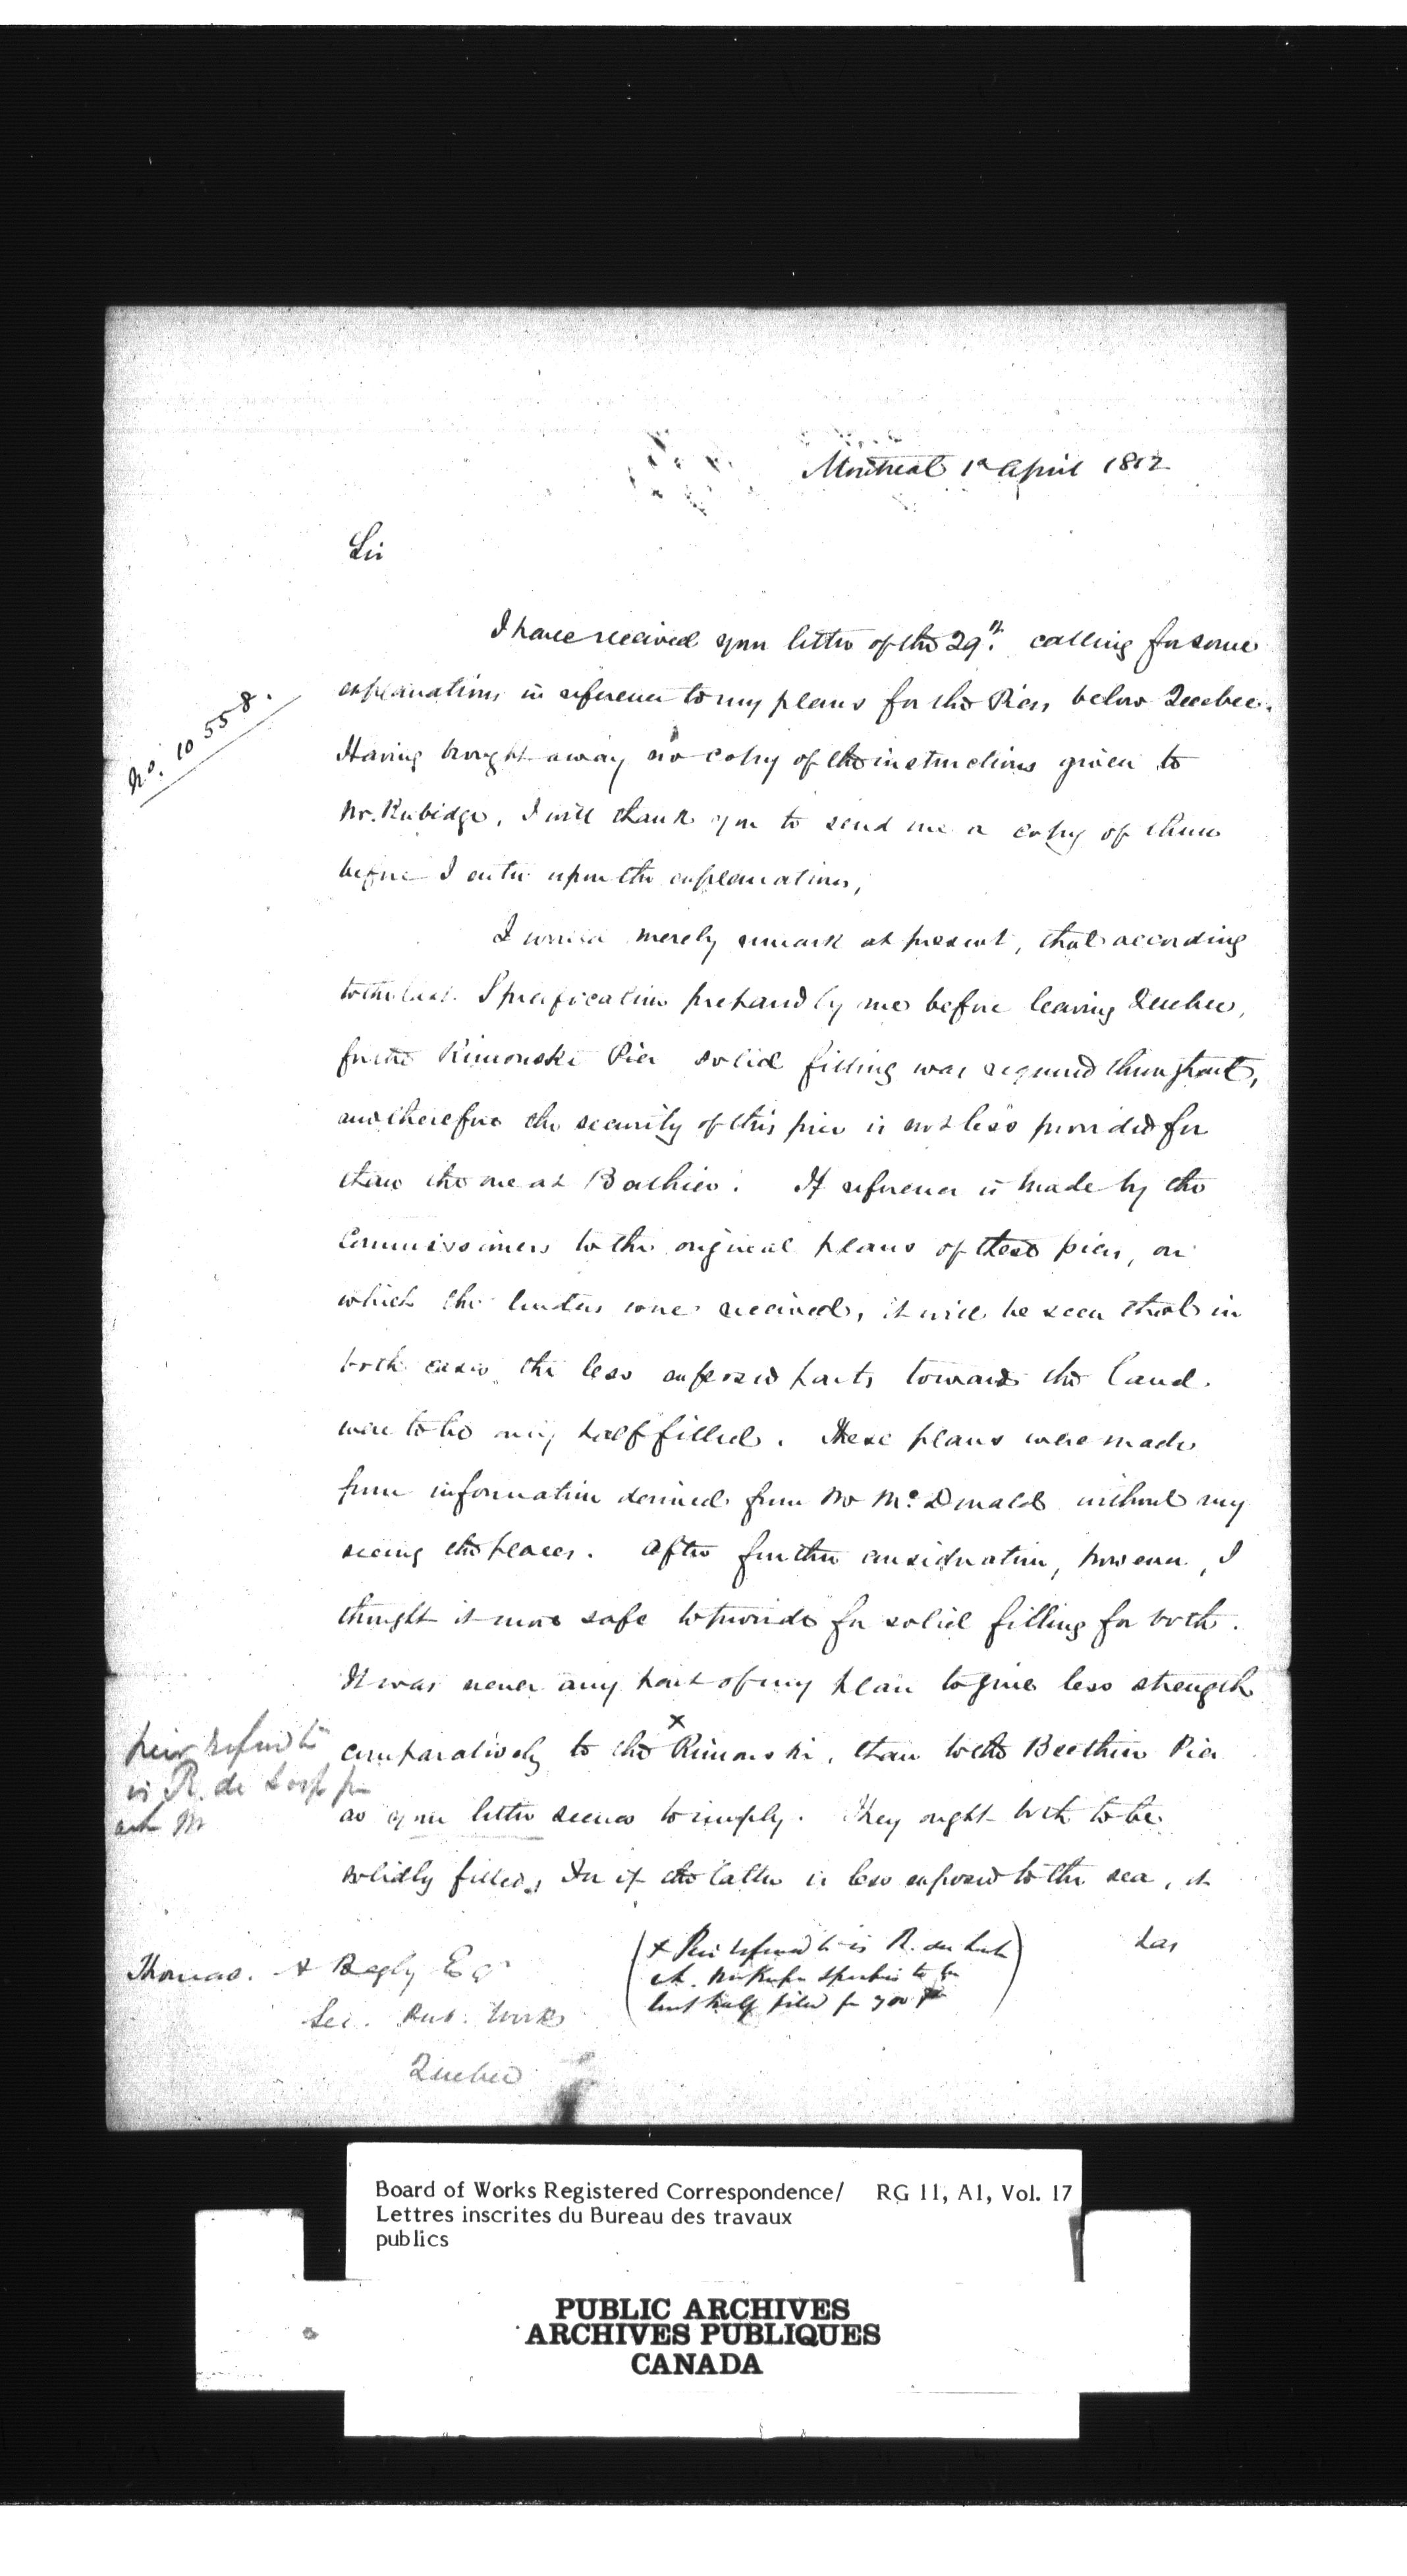 Montreal 1st April 1852
Sir
No. 10558.
I have received your letter of the 29th. calling for some
explanations in reference to my plans for the Piers below Quebec.
Having brought away no copy of the instructions given to
Mr. Rubidge, I will thank you to send me a copy of them
before I enter upon the explanations,
I would merely remark at present, that according
to the last Specification prepared by me before leaving Quebec,
for the Rimouski Pier solid filling was required throughout,
and therefore the security of this pier is not less provided for
than the one at Berthier. If reference is made by the
Commissioners to the original plans of these piers, on
which the tenders were received, it will be seen that in
both cases the less exposed parts towards the land
were to be only half filled. These plans were made
from information derived from Mr McDonald without my
seeing the places. After further consideration, however, I
thought it more safe to provide for solid filling for both.
It was never any part of my plan to give less strength
comparatively to the x Rimouski, than to the Berthier Pier
as your letter seems to imply. They ought both to be
solidly filled, for if the latter is less exposed to the sea, it
has
pier referred to
is R. du Loup
(x Pier referred to is R. du Loup
but half filled for you)
Thomas A Begly Esqr
Sec. Pub. Works
Quebec
Board of Works Registered Correspondence/ RG 11, A1, Vol. 17
Lettres inscrites du Bureau des travaux
publics
PUBLIC ARCHIVES
ARCHIVES PUBLIQUES
CANADA